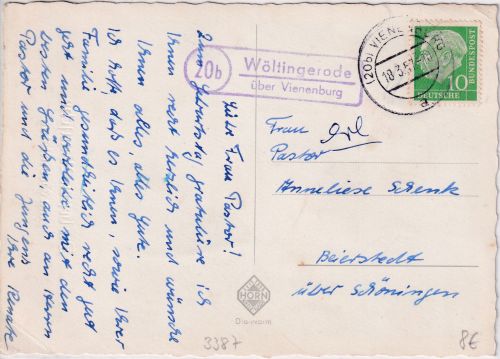 Liebe Frau Pastor!
Zum Geburtstag gratuliere ich
Ihnen recht herzlich und wünsche
Ihnen alles, alles Gute.
Ich hoffe, daß es Ihnen, sowie Ihrer
Familie gesundheitlich recht gut
geht und verbleibe mit den
besten Grüßen, auch an Herrn
Pastor und die Jungens
Ihre Renate
20b
Wöltingerode
über Vienenburg
(20b) VIENENBURG
18.3.5
a
10
DEUTSCHE BUNDESPOST
Frau
Pastor
Anneliese Schenk
Beierstedt
über Schöningen
HORN
Die Norm
3387
8€